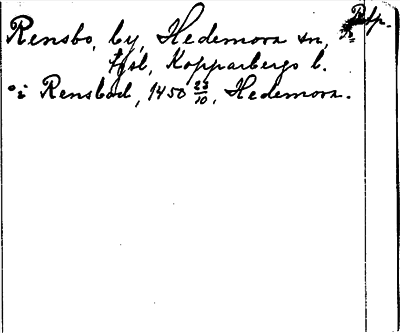 Rensbo, by, Hedemora sn, Rsp.
Kopparbergs l.
i Rensbod, 1450 23/10, Hedemora.